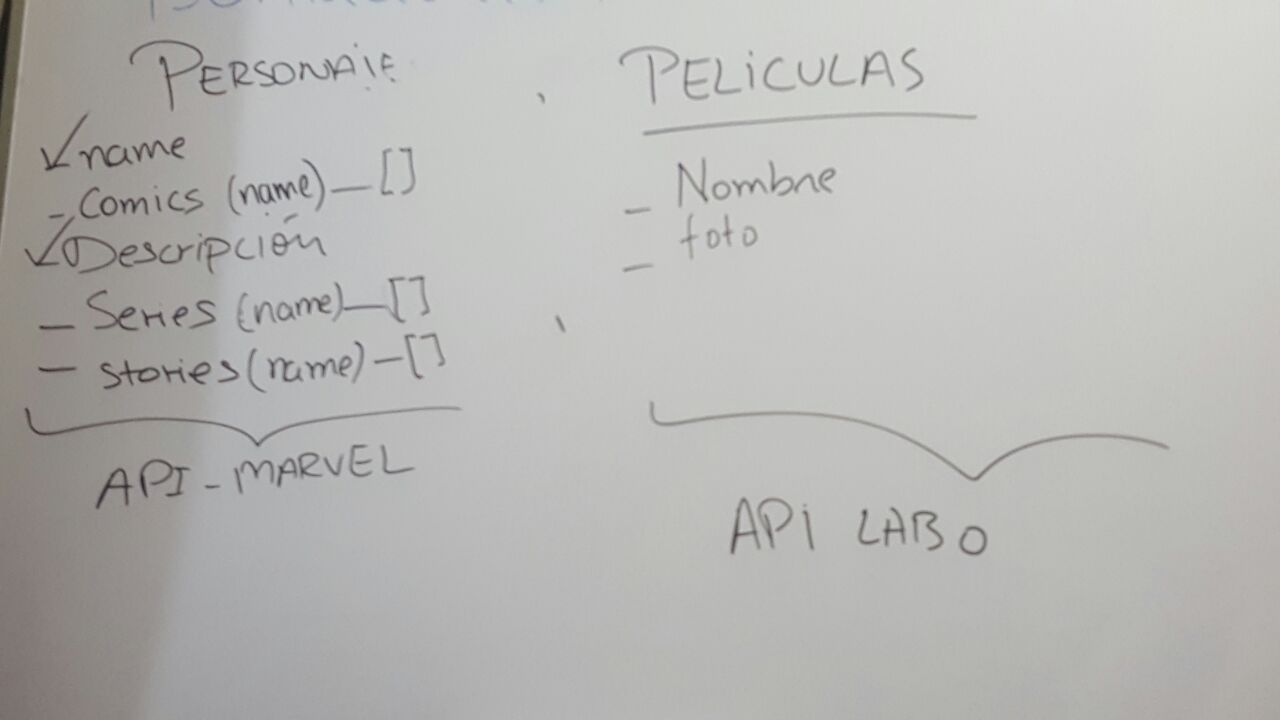 PERSONAJE
✓ name
- Comics (name) — []
✓ Descripción
- Series (name) — []
- stories (name) - []
API - MARVEL
PELiCULAS
- Nombre
foto
-
APi LABO